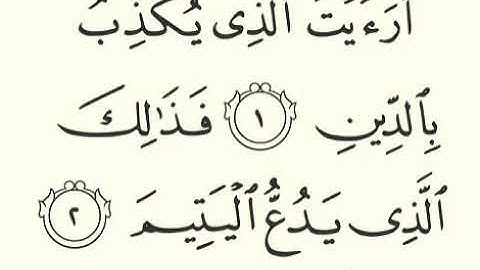 أَرَءَيْتَ ٱلَّذِى يُكَذِّبُ
بِٱلدِّينِ ١ فَذَٰلِكَ
ٱلَّذِى يَدُعُّ ٱلْيَتِيمَ ٢